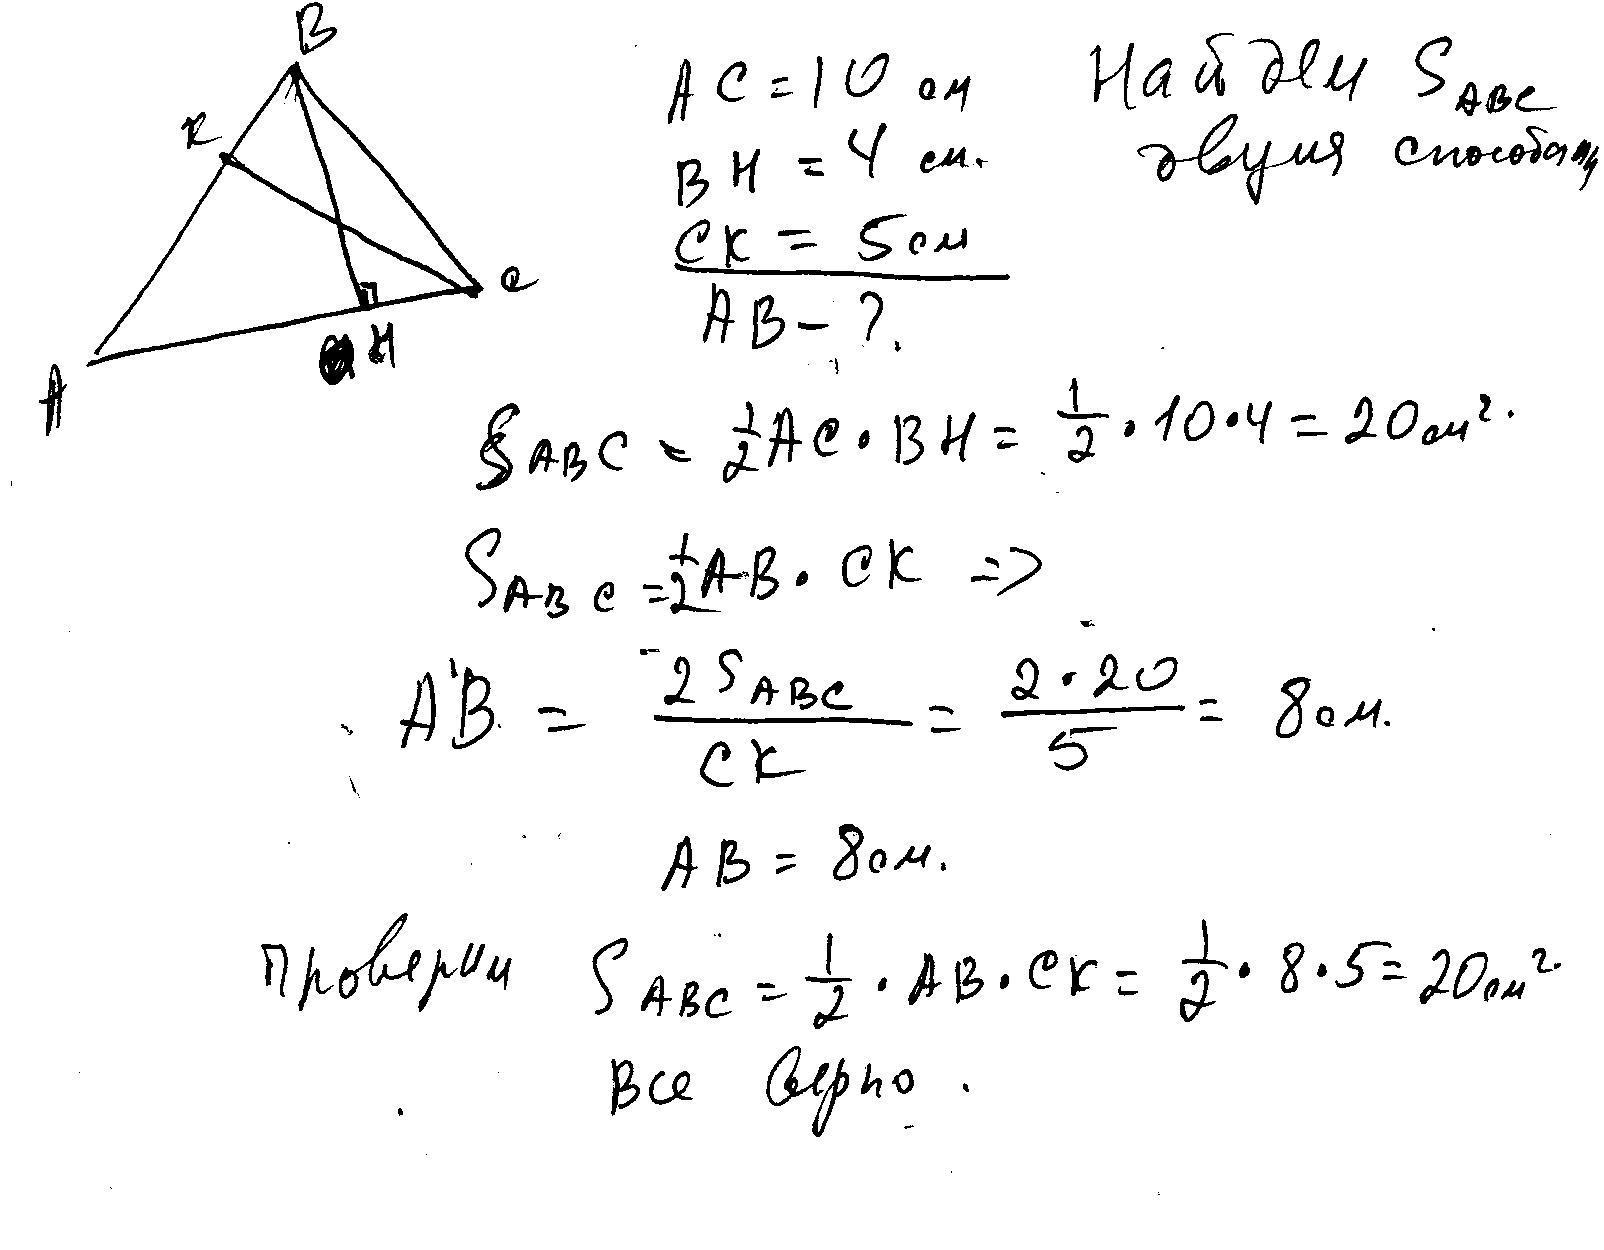 B
K
C
H
A
AC = 10 см
BH = 4 см.
CK = 5 см
AB - ?
Найдем S ABC
двумя способами
S ABC = 1/2 AC · BH = 1/2 · 10 · 4 = 20 см².
S ABC = 1/2 AB · CK =>
AB = 2 S ABC / CK = 2 · 20 / 5 = 8 см.
AB = 8 см.
проверим S ABC = 1/2 · AB · CK = 1/2 · 8 · 5 = 20 см²
Все верно.